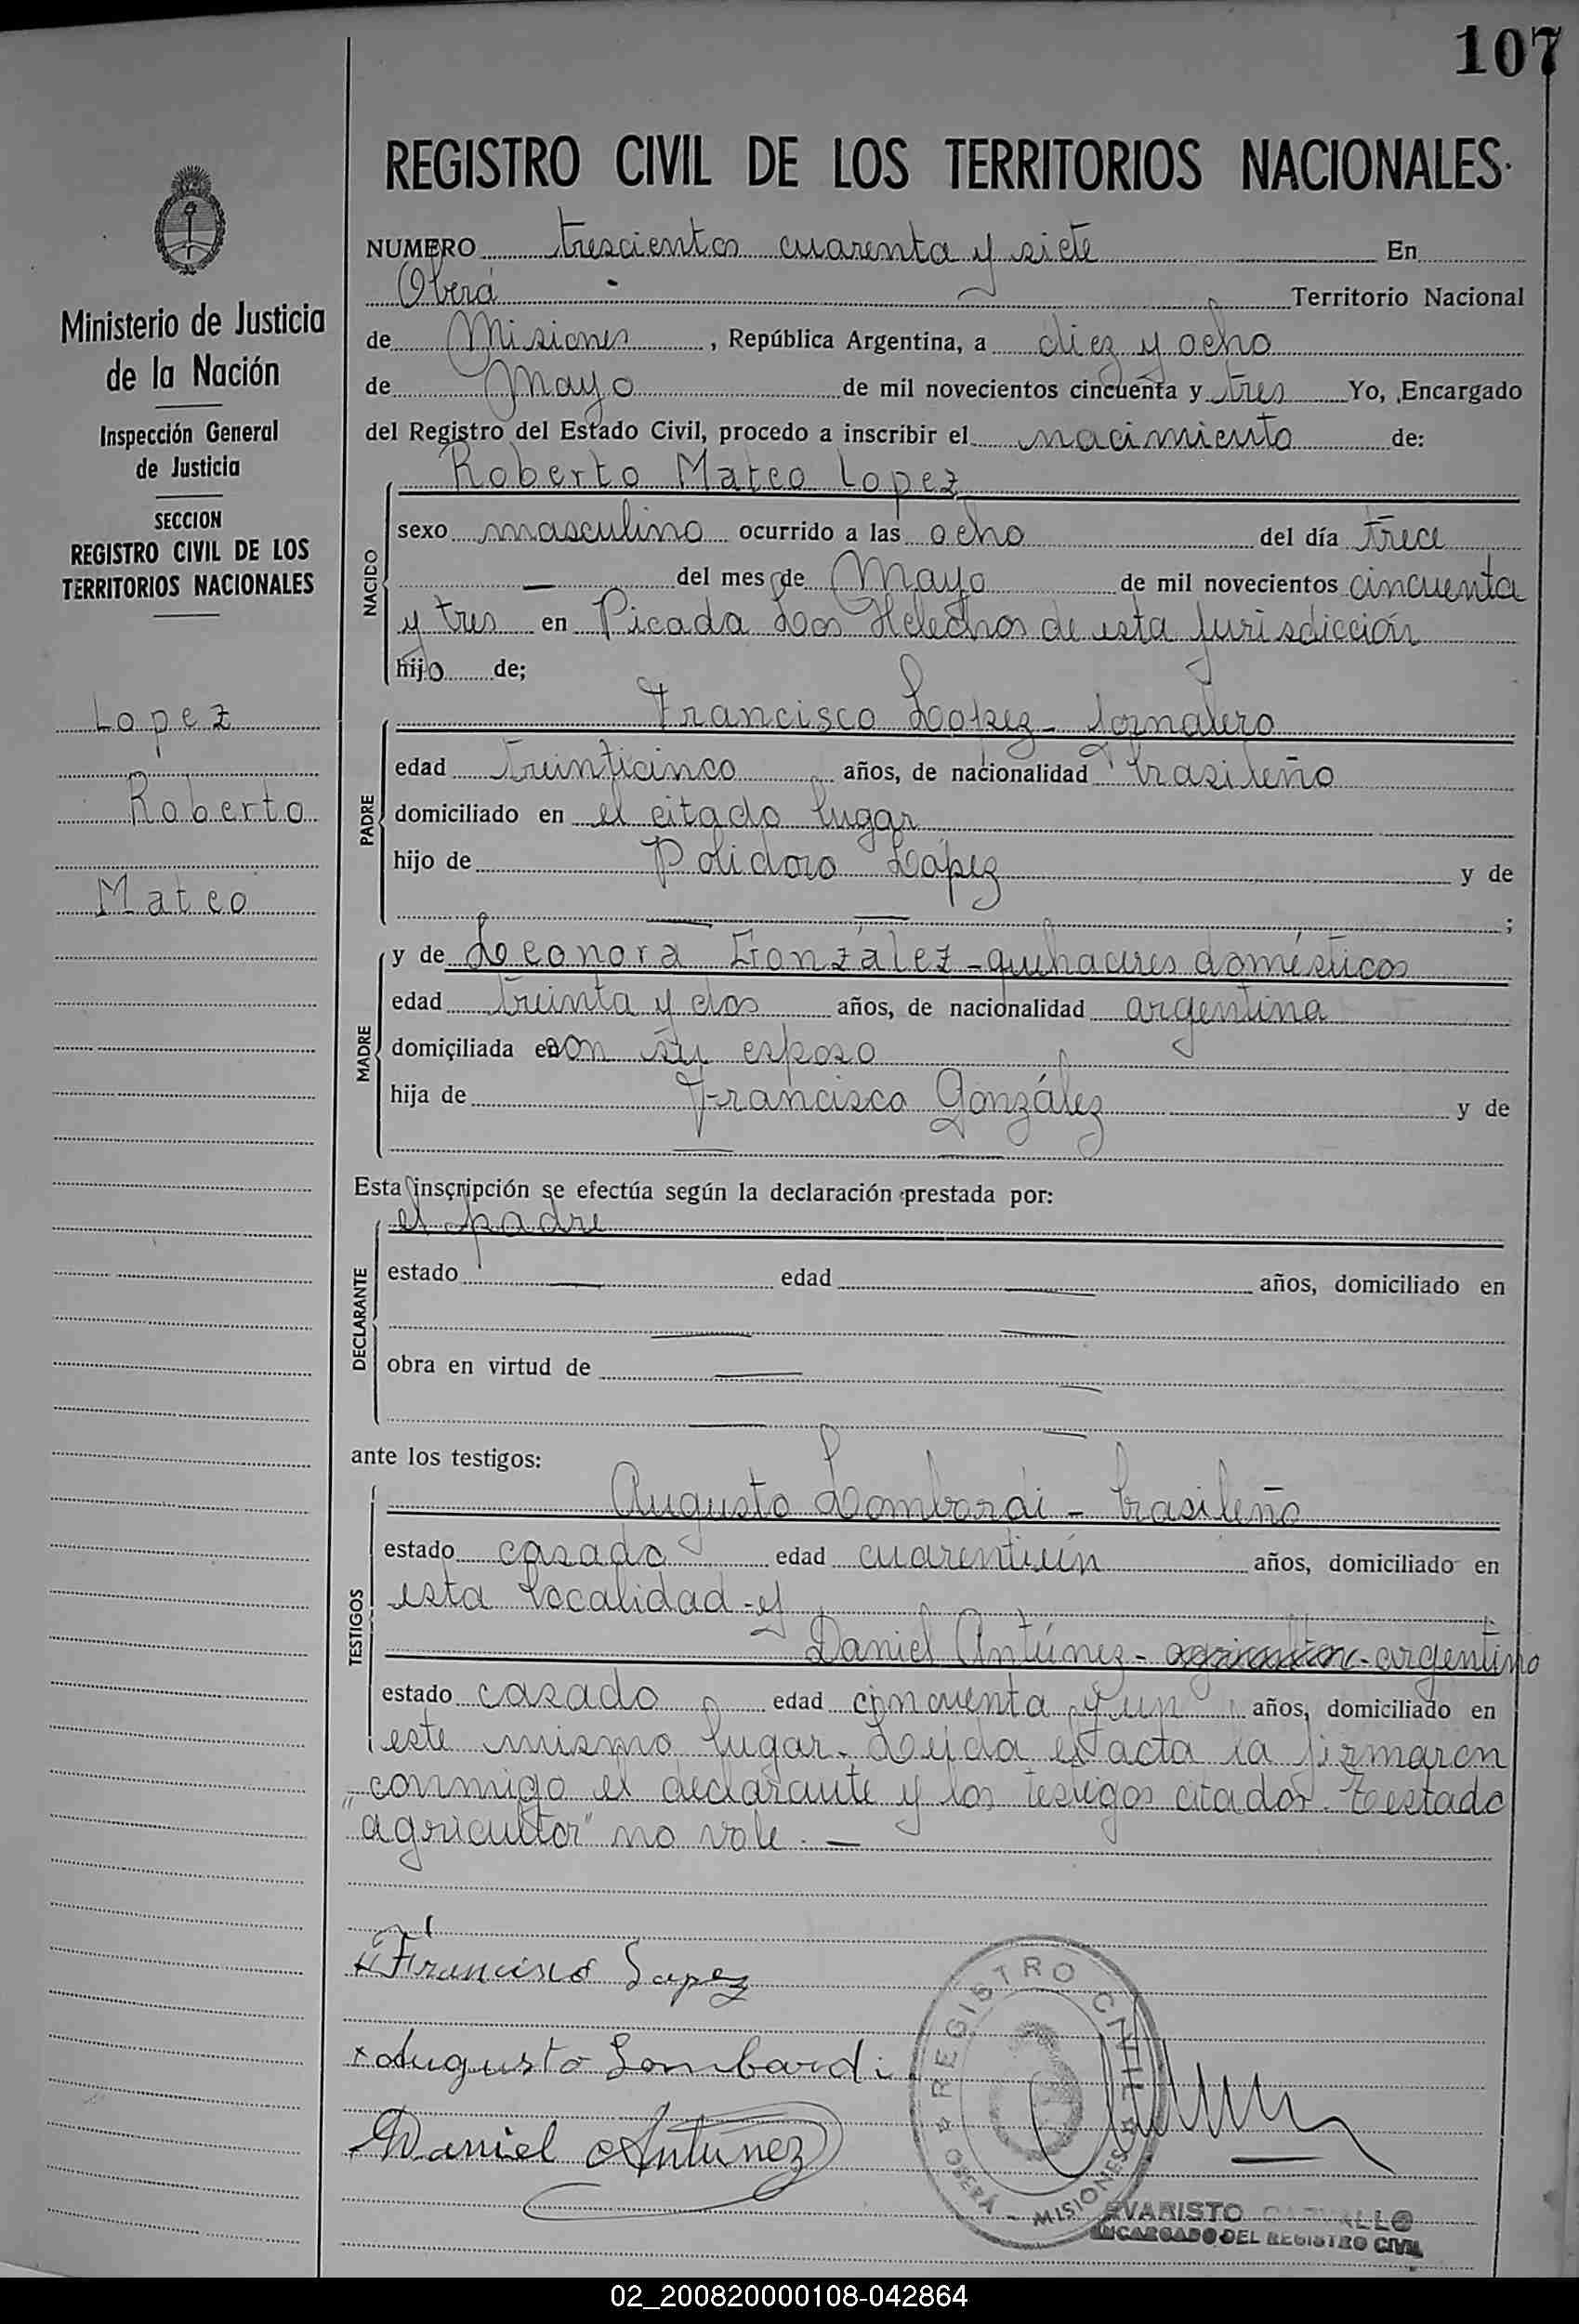 107
REGISTRO CIVIL DE LOS TERRITORIOS NACIONALES
Ministerio de Justicia
de la Nación
Inspección General
de Justicia
SECCION
REGISTRO CIVIL DE LOS
TERRITORIOS NACIONALES
Lopez
Roberto
Mateo
NUMERO trescientos cuarenta y siete En
Oberá Territorio Nacional
de Misiones, República Argentina, a diez y ocho
de Mayo de mil novecientos cincuenta y tres Yo, Encargado
del Registro del Estado Civil, procedo a inscribir el nacimiento de:
NACIDO
Roberto Mateo Lopez
sexo masculino ocurrido a las ocho del día trece
— del mes de Mayo de mil novecientos cincuenta
y tres en Picada Los Helechos de esta Jurisdicción
hijo de;
PADRE
Francisco Lopez - Jornalero
edad treinticinco años, de nacionalidad brasileño
domiciliado en el citado lugar
hijo de Polidoro López y de
— — ;
MADRE
y de Leonora González - quehaceres domésticos
edad treinta y dos años, de nacionalidad argentina
domiciliada con su esposo
hija de Francisca González y de
— —
Esta inscripción se efectúa según la declaración prestada por:
DECLARANTE
el padre
estado — edad — años, domiciliado en
— —
obra en virtud de — —
— —
ante los testigos:
TESTIGOS
Augusto Lombardi - brasileño
estado casado edad cuarentiún años, domiciliado en
esta localidad - y
Daniel Antúnez - agricultor - argentino
estado casado edad cincuenta y un años, domiciliado en
este mismo lugar. Leída el acta la firmaron
conmigo el declarante y los testigos citados. Testado
"agricultor" no vale. —
Francisco Lopez
x Augusto Lombardi
Daniel Antunez
REGISTRO CIVIL
OBERÁ - MISIONES
EVARISTO
ENCARGADO DEL REGISTRO CIVIL
02_200820000108-042864